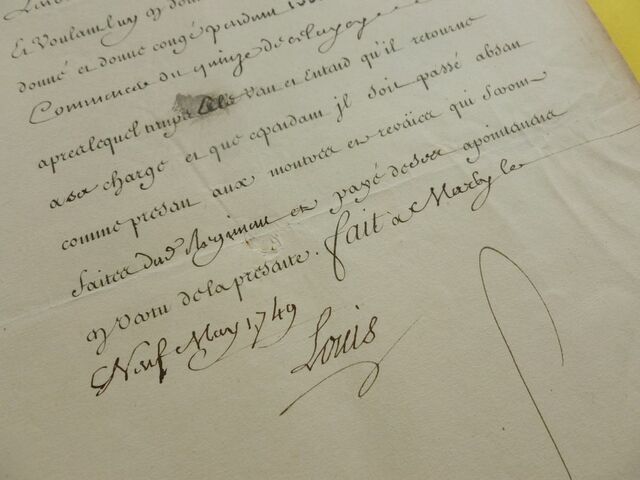 Et Voulant luy en donn
donné et donne congé pendant
Commencer du quinze de ce
apres lequel temps Veut et Entend qu'il retourne
a sa charge et que cependant jl soit passé absent
comme present aux montres et reveües qui seront
faites dud. Regiment et payé de ses apointemens
en vertu de la presente. fait a Marly le
Neuf May 1749
Louis